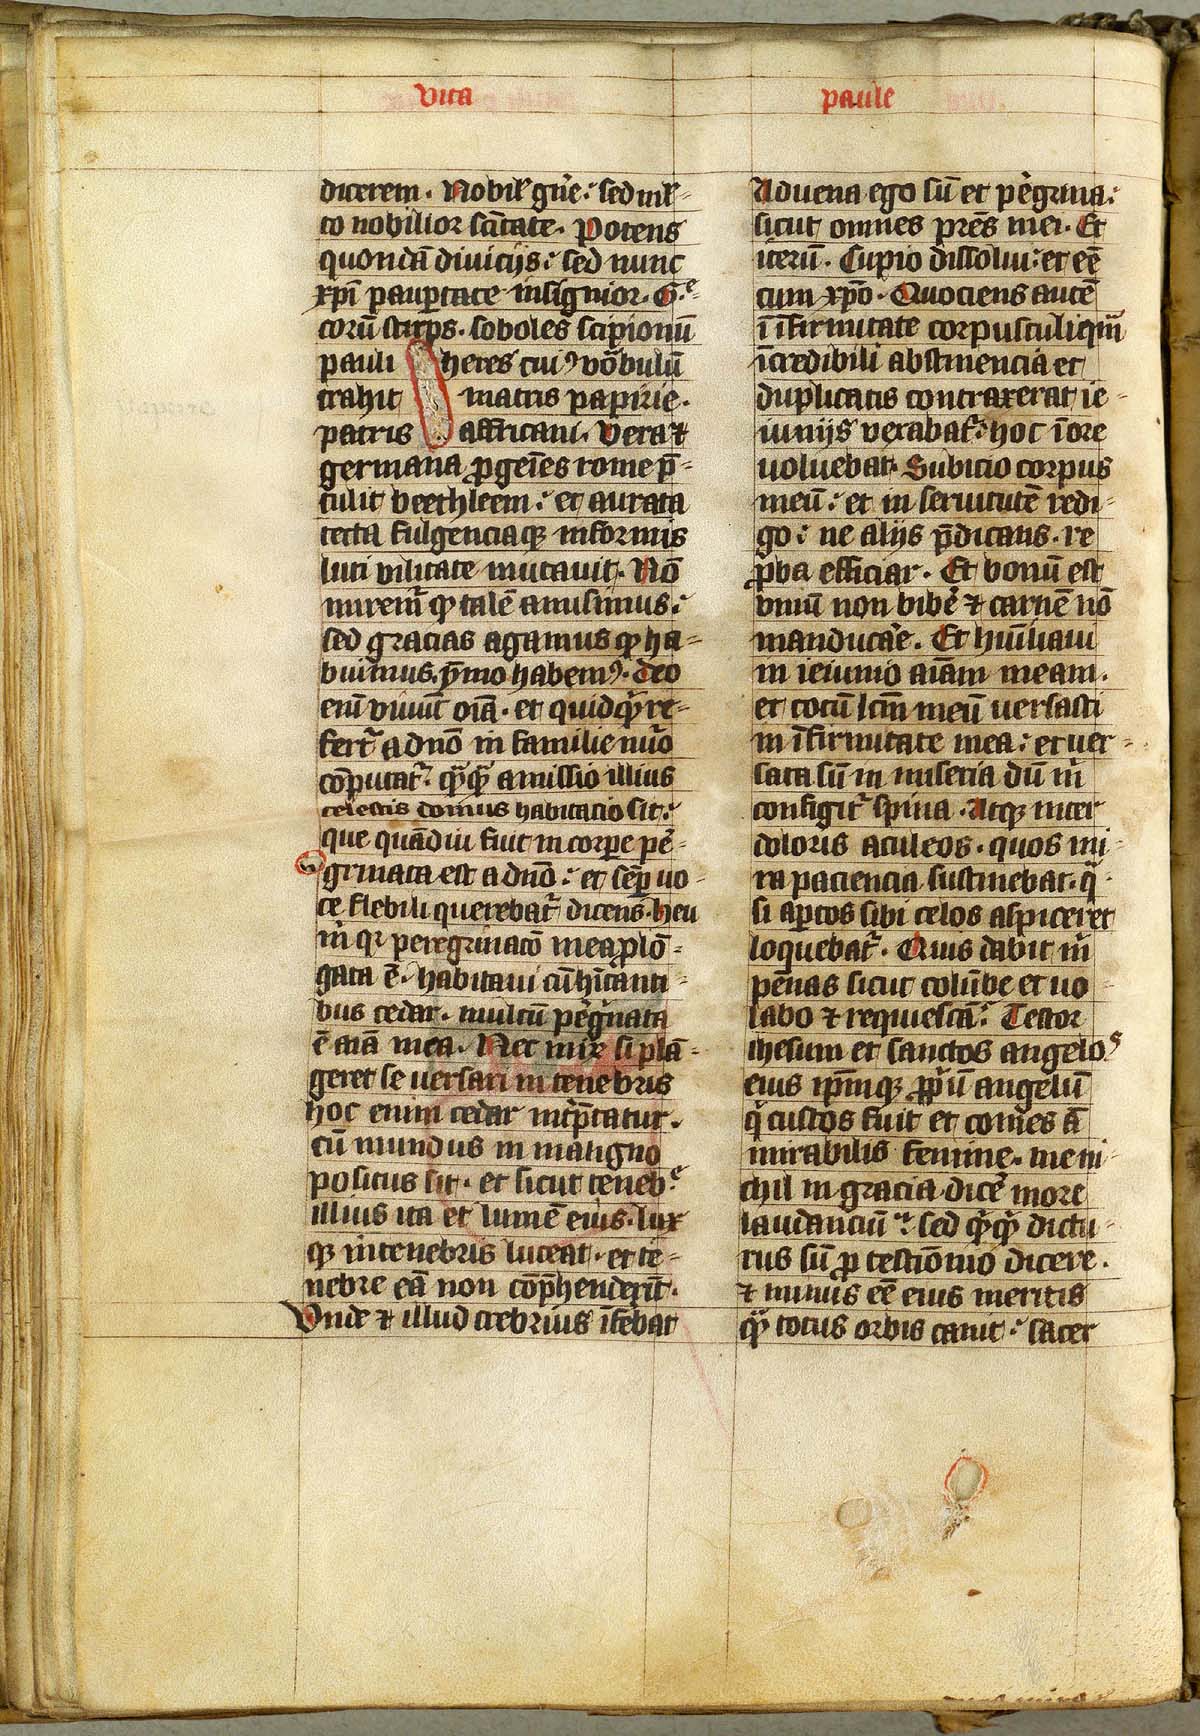 vita paule
dicerem. Nobil' gn̄e: sed ml'-
to nobilior sc̄itate. Potens
quondā diuicijs: sed nunc
xp̄i paup̄tate insignior. G^e-
corū stirps. soboles scipionū
pauli heres cui⁹ vōbulū
trahit matris papirie.
patris affricani. Vera ⁊
germana ꝓgēies rome p̄-
tulit beethleem: et aurata
tecta fulgenciaqꝫ informis
luti vilitate mutauit. Nō
mirem̄ ꝙ talē amisimus:
sed gracias agamus ꝙ ha-
buimus. ȳmo habem⁹. deo
eīn viuūt oīa. et quidq̄d re-
fert̄ a dnō in familie nūo
cōputat̄. q̄ꝙ amissio illius
celestis domus habitacio sit:
que quādiu fuit in corpe pē-
grinata est a dnō: et semp uo-
ce flebili querebat̄ dicens. heu
m̄ qr peregrinatō mea ꝓlō-
gata ē. habitaui cū hītanti-
bus cedar. multū pēg̊nata
ē aīa mea. Nec mir⁊ si plā-
geret se uersari in tenebris
hoc enim cedar int̄p̄tatur.
cū mundus in maligno
positus sit. et sicut teneb^e
illius ita et lumē eius. lux
qꝫ in tenebris luceat. et te-
nebre eā non cōp̄henderūt.
Unde ⁊ illud crebrius īfebat
Aduena ego sū et pēgrina:
sicut omnes prēs mei. Et
iterū. Cupio dissolui: et eē
cum xp̄o. Quociens autē
ī īfirmitate corpusculi q̄m
īcredibili abstinencia et
duplicatis contraxerat ie-
iunijs vexabat̄: hoc ī ore
uoluebat. Subicio corpus
meū: et in seruitutē redi-
go: ne alijs p̄dicans. re
ꝓba efficiar. Et bonū est
vinū non bibē ⁊ carnē nō
manducāe. Et hūiliaui
in ieiunio aīam meam.
et totū lc̄m meū uersasti
in īfirmitate mea: et uer-
sata sū in miseria dū m̄
configit̄ spina. Atqꝫ inter
doloris aculeos. quos mi-
ra paciencia sustinebat. q̄-
si aptos sibi celos aspiceret
loquebat̄. Quis dabit m̄
pēnas sicut colūbe et uo-
labo ⁊ requiescā: Testor
ihesum et sanctos angelo^s
eius ip̄mqꝫ ꝓp̄ū angelū
q̄ custos fuit et comes ā
mirabilis femine. me ni-
chil in gracia. dicē more
laudanciū: sed q̄ꝙ dictu-
rus sū ꝓ testiōnio dicere.
⁊ minus eē eius meritis
q̄ totus orbis canit: sacer